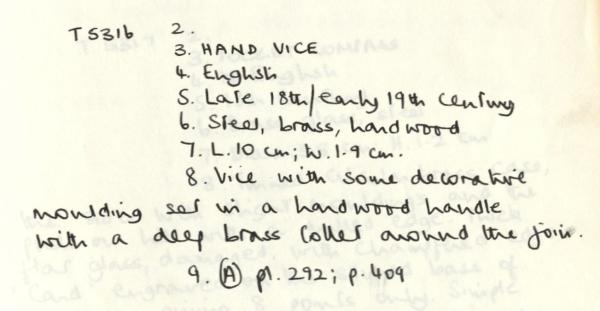 T5316 2.
3. HAND VICE
4. English
5. Late 18th/early 19th century
6. Steel, brass, hardwood
7. L. 10 cm; W. 1.9 cm.
8. Vice with some decorative
moulding set in a hardwood handle
with a deep brass collar around the join.
9. (A) pl. 292; p. 409